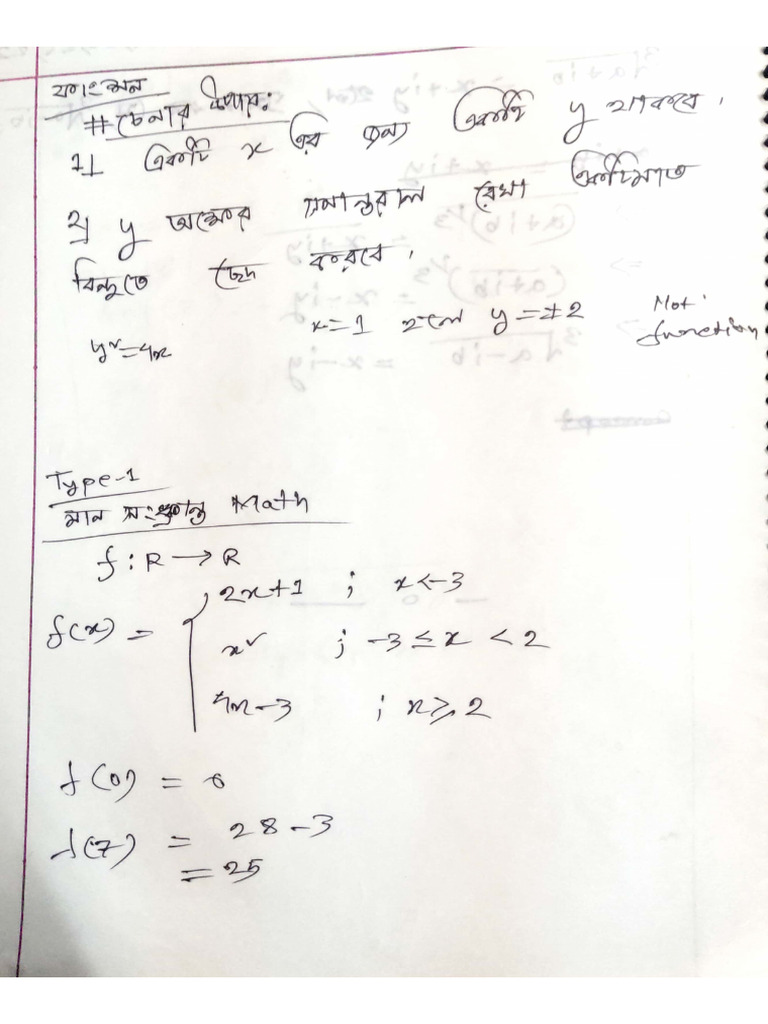 ফাংশন
# চেনার উপায়:
১| একটি x এর জন্য একটি y থাকবে।
২| y অক্ষের সমান্তরাল রেখা একটিমাত্র
বিন্দুতে ছেদ করবে।
y² = 4x x = 1 হলে y = ±2 Not function
Type-1
মান সংক্রান্ত Math
f : R → R
f(x) = { 2x+1 ; x < -3
x² ; -3 ≤ x < 2
4x-3 ; x ≥ 2
f(0) = 0
f(7) = 28-3
= 25